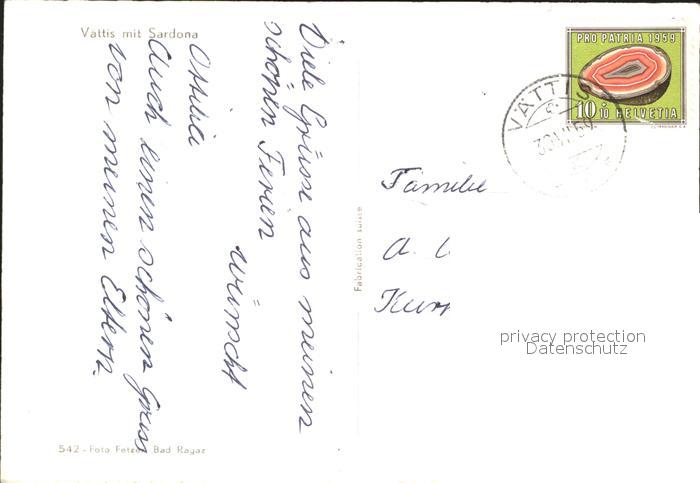 Vättis mit Sardona
Viele Grüsse aus meinen
schönen Ferien
wünscht
Ottilia
Auch einen schönen Gruss
von meinen Eltern.
542 - Foto Fetzer, Bad Ragaz
Fabrication suisse
PRO PATRIA 1959
10+10 HELVETIA
VÄTTIS
Familie
A. L
privacy protection
Datenschutz